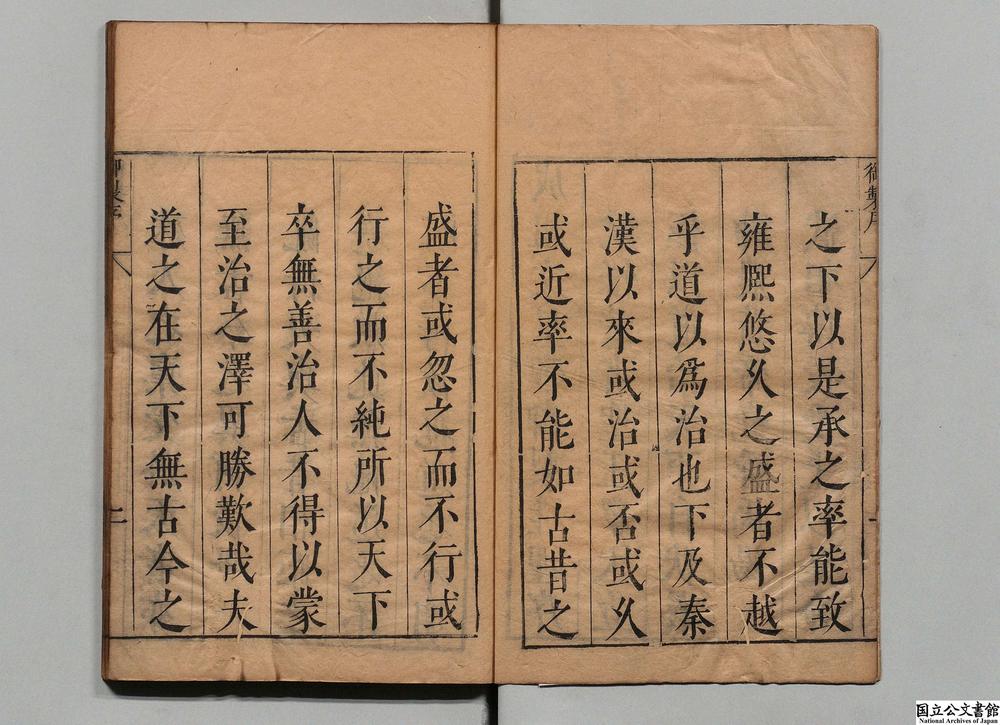 御製序
之下以是承之率能致
雍熈悠乆之盛者不越
乎道以爲治也下及秦
漢以來或治或否或乆
或近率不能如古昔之
一
盛者或忽之而不行或
行之而不純所以天下
卒無善治人不得以蒙
至治之澤可勝歎哉夫
道之在天下無古今之
御製序
二
国立公文書館
National Archives of Japan